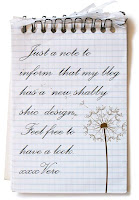 Just a note to
inform that my blog
has a new shabby
shic design,
Feel free to
have a look
xxxo Vero